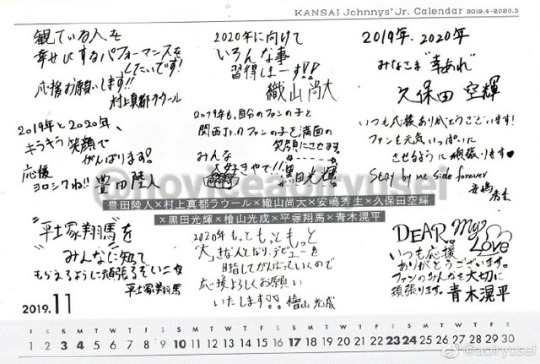 KANSAI Johnnys' Jr. Calendar 2019.4-2020.3
観ている人を
幸せにするパフォーマンスを
したいです!
応援お願いします!!
村上真都ラウール
2020年に向けて
いろんな事
習得しまーす!!
織山尚大
2019年、2020年
みなさま"幸あれ"
久保田空輝
2019年と2020年、
キラキラ笑顔で
がんばります!
応援
ヨロシクね!!
豊田陸人
2019年も、自分のファンの子と
関西Jr.のファンの子を満面の
笑顔にさせます。
みんな
大好きやで!!
黒田光輝
いつも応援ありがとうございます!
ファンも元気いっぱいに
させるように頑張ります♥
Stay by my side forever
安嶋秀生
豊田陸人×村上真都ラウール×織山尚大×安嶋秀生×久保田空輝
×黒田光輝×檜山光成×平塚翔馬×青木滉平
"平塚翔馬"を
みんなに知って
もらえるように頑張るぞいこな
平塚翔馬
2020年もっともっともっと
大きな人となり、デビューを
目指してがんばっていくので
応援よろしくお願い
いたします!!
檜山光成
DEAR. My Love
いつも応援
ありがとうございます。
ファンのみんなを大切に
頑張ります。
青木滉平
2019.11
F S S M T W T F S S M T W T F S S M T W T F S S M T W T F S
1 2 3 4 5 6 7 8 9 10 11 12 13 14 15 16 17 18 19 20 21 22 23 24 25 26 27 28 29 30